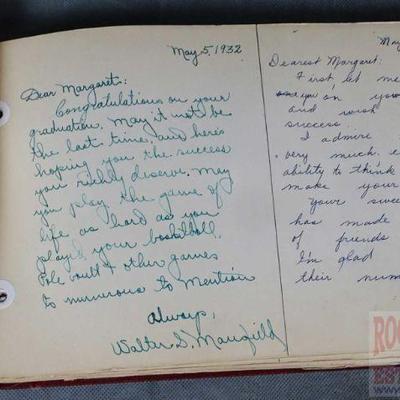 May 5, 1932
Dear Margaret:
Congratulations on your
graduation. May it not be
the last time, and here's
hoping you the success
you richly deserve. May
you play the game of
life as hard as you
played your basketball,
Pole vault & other games
to numerous to mention
Always,
Walter S. Mansfield
May
Dearest Margaret:
First let me
you on you
and wish
success
I admire
very much,
ability to think
make your
Your swee
has made
of friends
I'm glad
their num
RO
ES